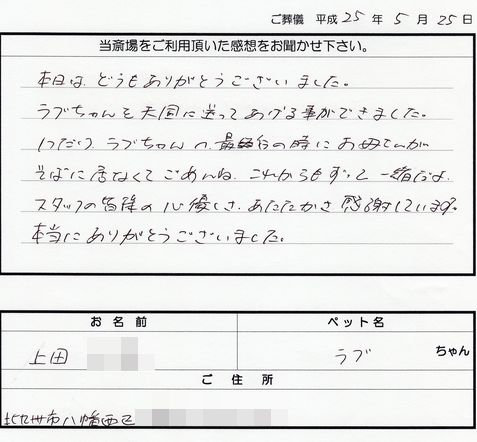 ご葬儀 平成 25 年 5 月 25 日
当斎場をご利用頂いた感想をお聞かせ下さい。
本日は、どうもありがとうございました。
ラブちゃんを天国に送ってあげる事ができました。
ラブちゃんの最後の時にお母さんが
そばに居なくてごめんね、これからもずっと一緒だよ
スタッフの皆様の心優しさ、あたたかさ感謝しています。
本当にありがとうございました。
お名前
ペット名
上田
ラブ ちゃん
ご住所
北九州市八幡西区